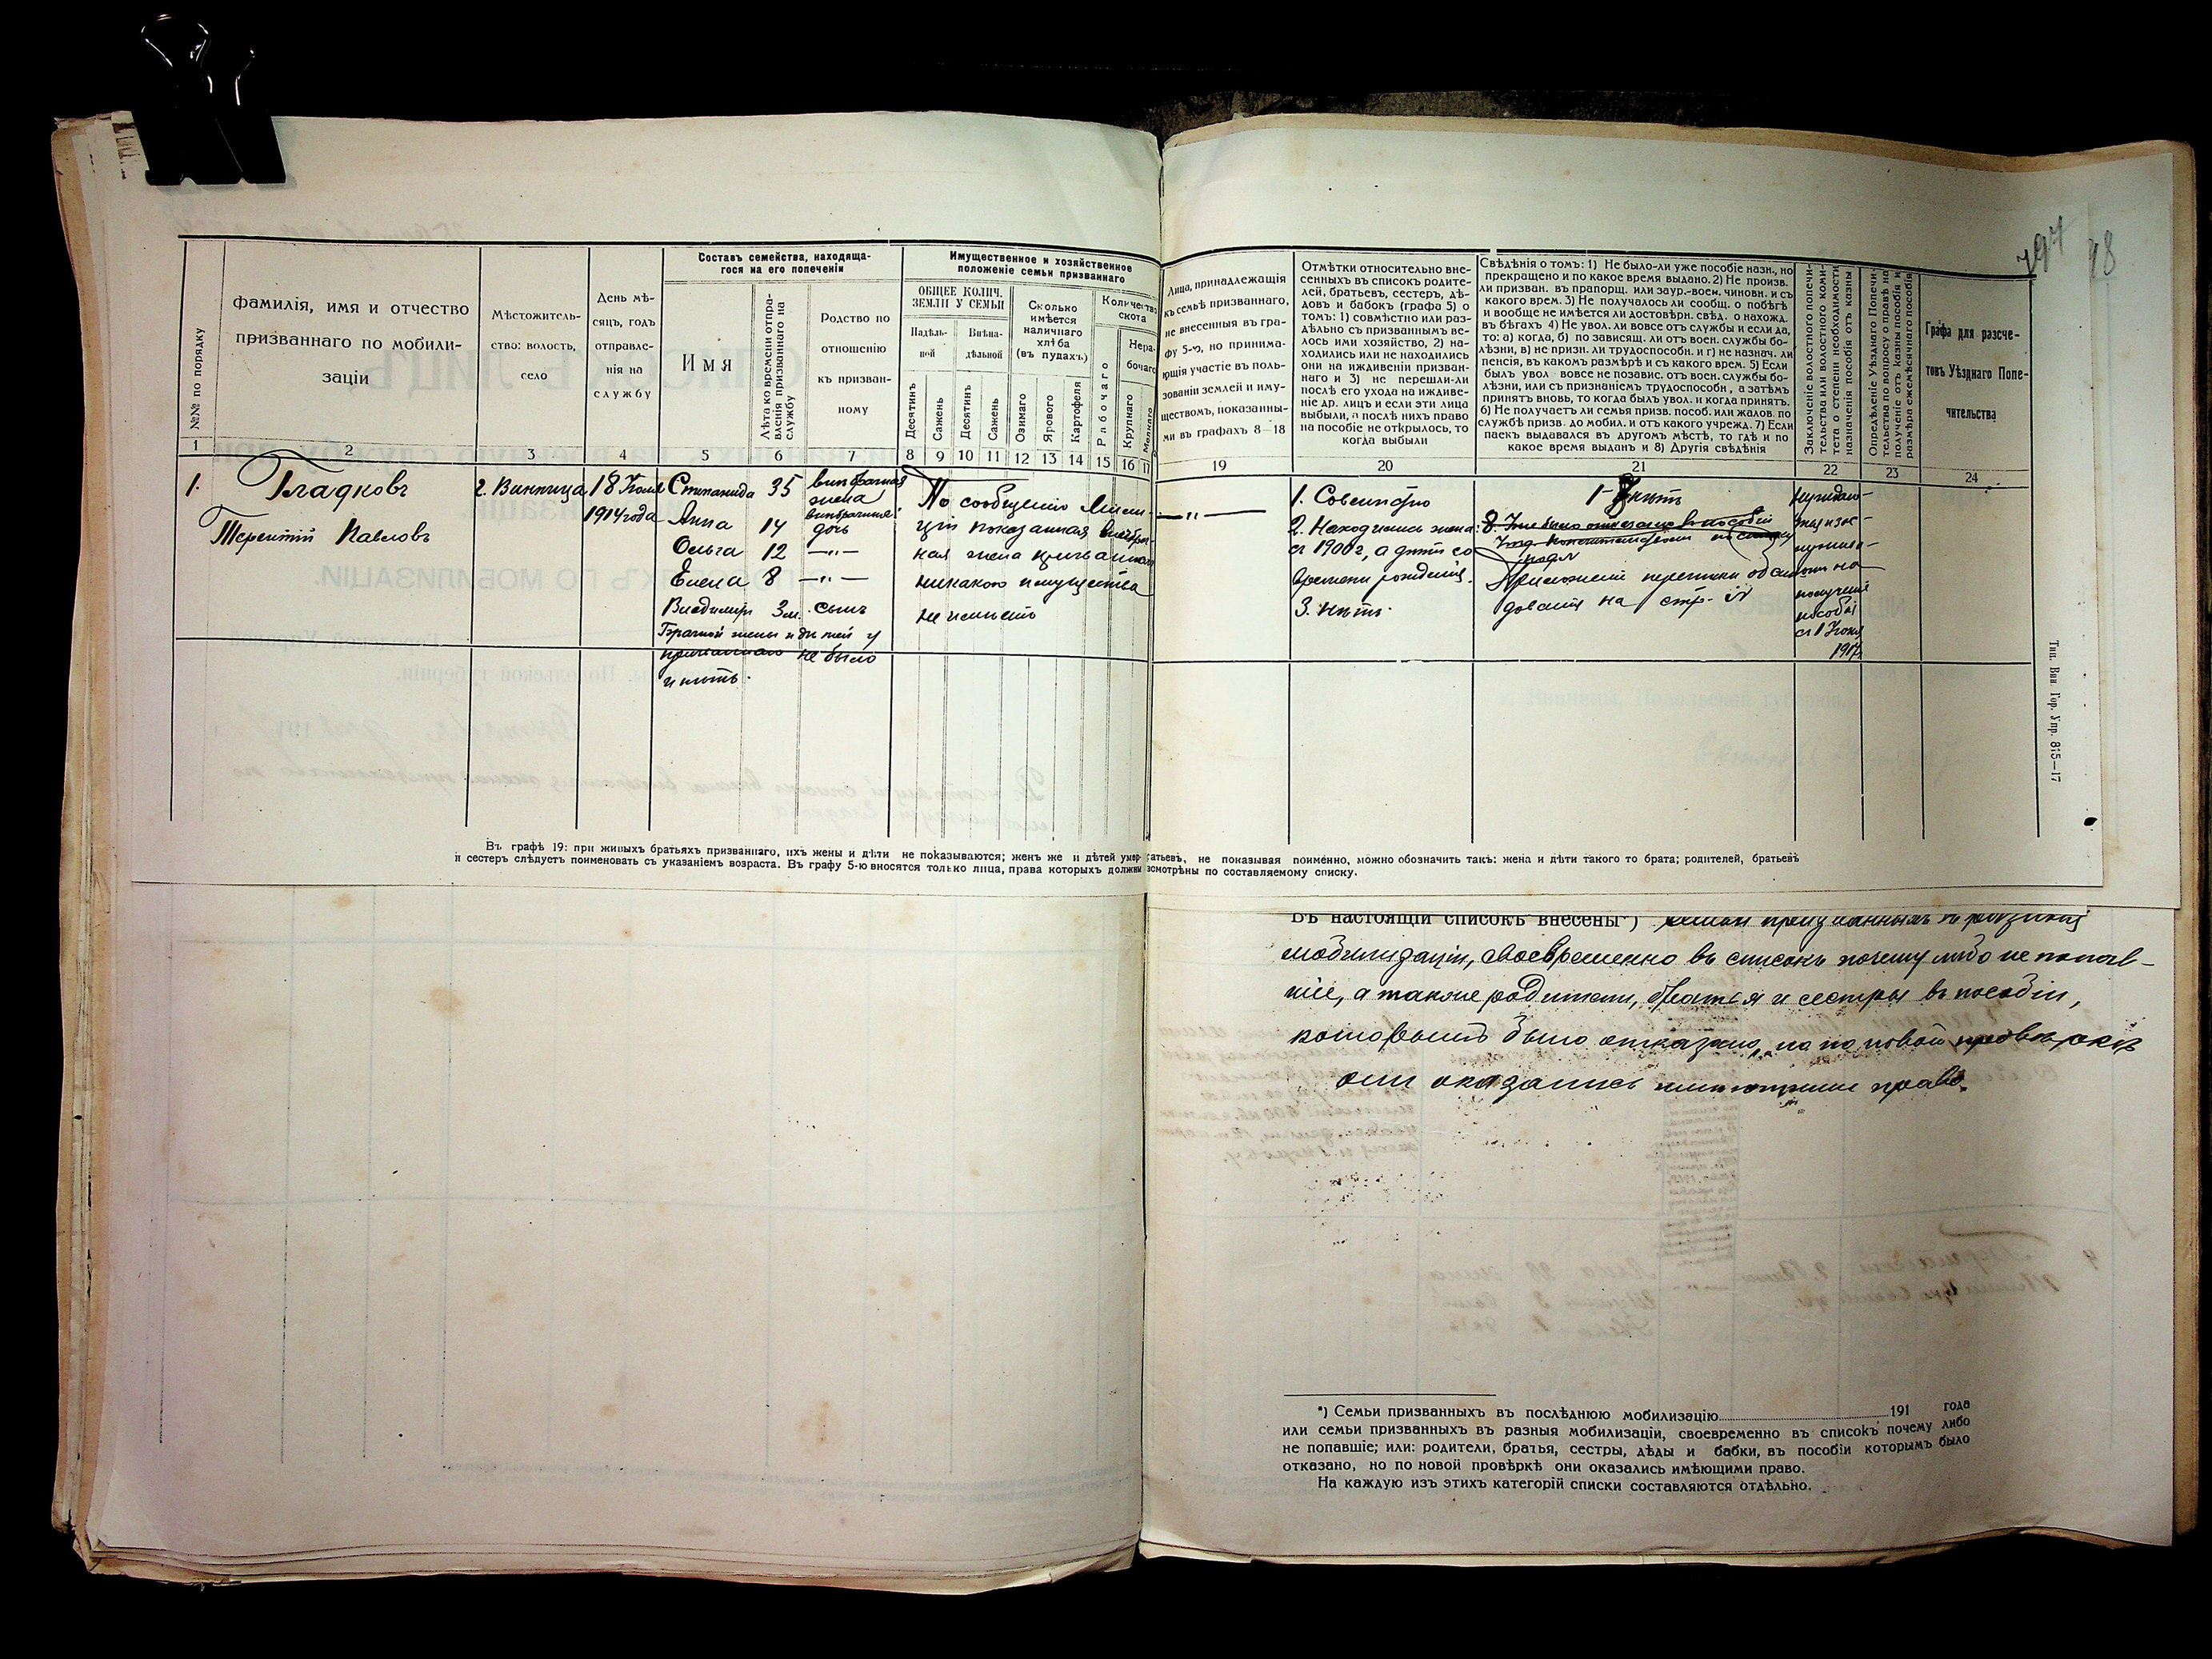 797 98
№№ по порядку
фамилія, имя и отчество
призваннаго по мобили-
заціи
Мѣстожитель-
ство: волость,
село
День мѣ-
сяцъ, годъ
отправле-
нія на
службу
Составъ семейства, находяща-
гося на его попеченіи
Имя
Лѣта ко времени отпра-
вленія призваннаго на
службу
Родство по
отношенію
къ призван-
ному
Имущественное и хозяйственное
положеніе семьи призваннаго
ОБЩЕЕ КОЛИЧ.
ЗЕМЛИ У СЕМЬИ
Надѣль-
ной
Внѣна-
дѣльной
Десятинъ
Сажень
Десятинъ
Сажень
Сколько
имѣется
наличнаго
хлѣба
(въ пудахъ)
Озимаго
Ярового
Картофеля
Количество
скота
Рабочаго
Нера-
бочаго
Крупнаго
Мелкаго
Лица, принадлежащія
къ семьѣ призваннаго,
не внесенныя въ гра-
фу 5-ю, но принима-
ющія участіе въ поль-
зованіи землей и иму-
ществомъ, показанны-
ми въ графахъ 8—18
Отмѣтки относительно вне-
сенныхъ въ списокъ родите-
лей, братьевъ, сестеръ, дѣ-
довъ и бабокъ (графа 5) о
томъ: 1) совмѣстно или раз-
дѣльно съ призваннымъ ве-
лось ими хозяйство, 2) на-
ходились или не находились
они на иждивеніи призван-
наго и 3) не перешли-ли
послѣ его ухода на иждиве-
ніе др. лицъ и если эти лица
выбыли, а послѣ нихъ право
на пособіе не открылось, то
когда выбыли
Свѣдѣнія о томъ: 1) Не было-ли уже пособіе назн., но
прекращено и по какое время выдано. 2) Не произв.
ли призван. въ прапорщ. или заур.-воен. чиновн. и съ
какого врем. 3) Не получалось ли сообщ. о побѣгѣ
и вообще не имѣется ли достовѣрн. свѣд. о нахожд.
въ бѣгахъ 4) Не увол. ли вовсе отъ службы и если да,
то: а) когда, б) по зависящ. ли отъ воен. службы бо-
лѣзни, в) не призн. ли трудоспособн. и г) не назнач. ли
пенсія, въ какомъ размѣрѣ и съ какого врем. 5) Если
былъ увол вовсе не позавис. отъ воен. службы бо-
лѣзни, или съ признаніемъ трудоспособн, а затѣмъ
принятъ вновь, то когда былъ увол. и когда принятъ.
6) Не получаетъ ли семья призв. пособ. или жалов. по
службѣ призв. до мобил. и отъ какого учрежд. 7) Если
паекъ выдавался въ другомъ мѣстѣ, то гдѣ и по
какое время выданъ и 8) Другія свѣдѣнія
Заключеніе волостного попечи-
тельства или волостного коми-
тета о степени необходимости
назначенія пособія отъ казны
Опредѣленіе Уѣзднаго Попечи-
тельства по вопросу о правѣ на
полученіе отъ казны пособія и
размѣра ежемѣсячнаго пособія
Графа для разсче-
товъ Уѣзднаго Попе-
чительства
1 2 3 4 5 6 7 8 9 10 11 12 13 14 15 16 17 19 20 21 22 23 24
1. Гладковъ
Терентій Павловъ
г. Винница
18 Іюля
1914 года
Степанида 35 внѣбрачная
жена
Анна 14 внѣбрачная
дочь
Ольга 12 —"—
Елена 8 —"—
Владимір 3 м. сынъ
Брачной жены и дѣтей у
призваннаго не было
и нѣтъ.
По сообщенію Мили-
ціи показанная внѣбрач-
ная жена призваннаго
никакого имущества
не имѣетъ
—"—
1. Совмѣстно
2. Находились жена
съ 1900 г, а дѣти со
времени рожденія.
3. нѣтъ.
1-7 нѣтъ
8.
на
получені
пособі
съ 1
Тип. Вин. Гор. Упр. 815—17
Въ графѣ 19: при живыхъ братьяхъ призваннаго, ихъ жены и дѣти не показываются; женъ же и дѣтей умер атьевъ, не показывая поименно, можно обозначить такъ: жена и дѣти такого то брата; родителей, братьевъ
и сестеръ слѣдуетъ поименовать съ указаніемъ возраста. Въ графу 5-ю вносятся только лица, права которыхъ должны смотрѣны по составляемому списку.
Въ настоящій списокъ внесены*) семьи призванныхъ въ разныя
мобилизаціи, своевременно въ списокъ почему либо не попав-
шіе, а также родители, братья и сестры въ пособіи,
которымъ было отказано, но по новой провѣркѣ
они оказались имѣющими право.
*) Семьи призванныхъ въ послѣднюю мобилизацію 191 года
или семьи призванныхъ въ разныя мобилизаціи, своевременно въ списокъ почему либо
не попавшіе; или: родители, братья, сестры, дѣды и бабки, въ пособіи которымъ было
отказано, но по новой провѣркѣ они оказались имѣющими право.
На каждую изъ этихъ категорій списки составляются отдѣльно.